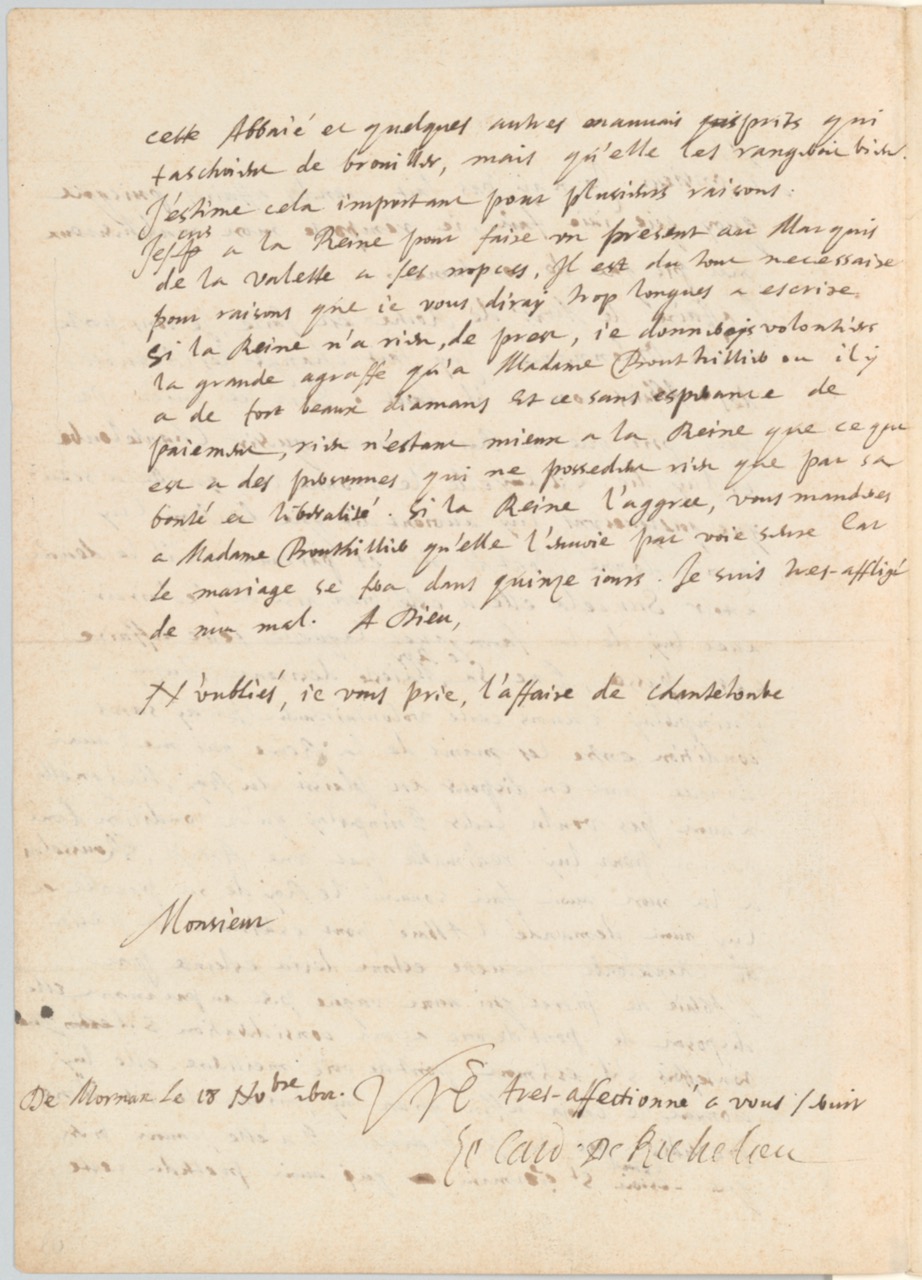 cette Abbaié et quelques autres mauuais esprits qui
taschoient de brouiller, mais qu'elle les rangeoit bien.
J'estime cela important pour plusieurs raisons.
J'escris a la Reine pour faire vn present au Marquis
de la valette a ses nopces, Il est du tout necessaire
pour raisons que ie vous diray trop longues a escrire
Si la Reine n'a rien, de prest, ie donnerois volontiers
la grande agraffe qu'a Madame Bouthillier ou il ÿ
a de fort beaux diamans Et ce sans esperance de
paiement, rien n'estant mieux a la Reine que ce qui
est a des personnes qui ne possedent rien que par sa
bonté et liberalité. Si la Reine l'aggree, vous manderes
a Madame Bouthillier qu'elle l'enuoie par voie seure Car
le mariage se fera dans quinze iours. Je suis tres-affligé
de mal. A Dieu,
N'oubliés, ie vous prie, l'affaire de chanteloube
Monsieur
De Mornax Le 18 Nobre
Vre tres-affectionné a vous seruir
Le Card. De Richelieu